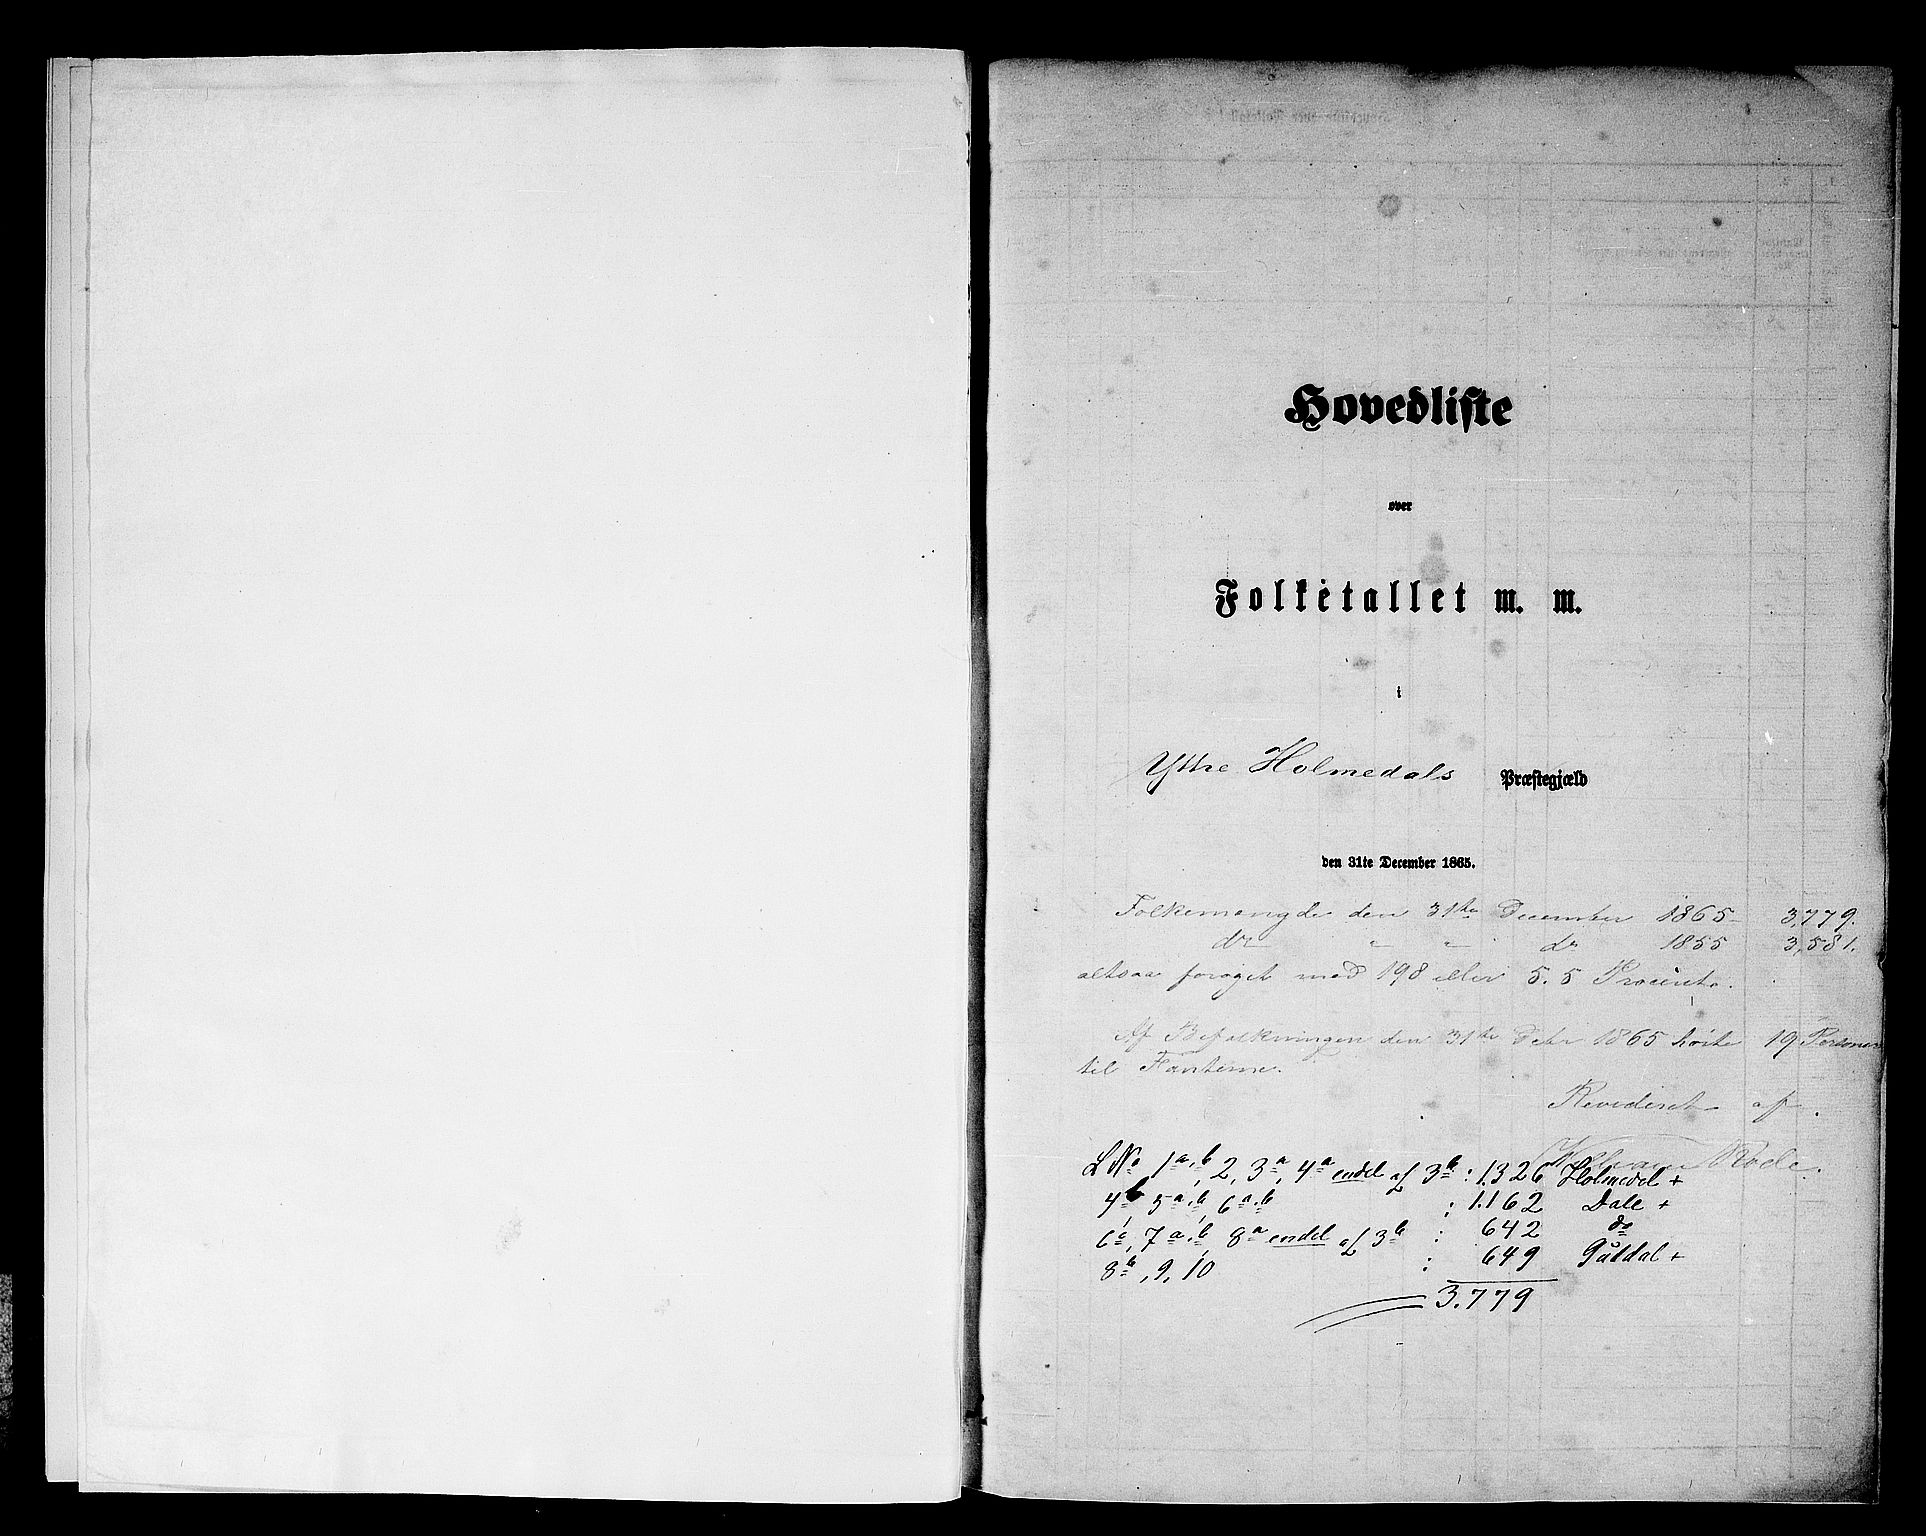 Hovedliste
over
Folketallet m. m.
i
Yttre Holmedals Præstegjæld
den 31te December 1865.
Folkemængde den 31te December 1865 3,779.
do " " do 1855 3,581.
altsaa forøget med 198 eller 5.5 Procent.
Af Befolkningen den 31te Debr 1865 hørte 19 Personer
til Fanterne.
Revideret af
Rode.
L No 1a,b, 2, 3a, 4a endel af 3b : 1.326 Holmedal +
4b, 5a,b, 6a,b : 1.162 Dale +
6c, 7a,b, 8a endel af 3b : 642 do
8b, 9, 10 : 649 Guldal +
3.779